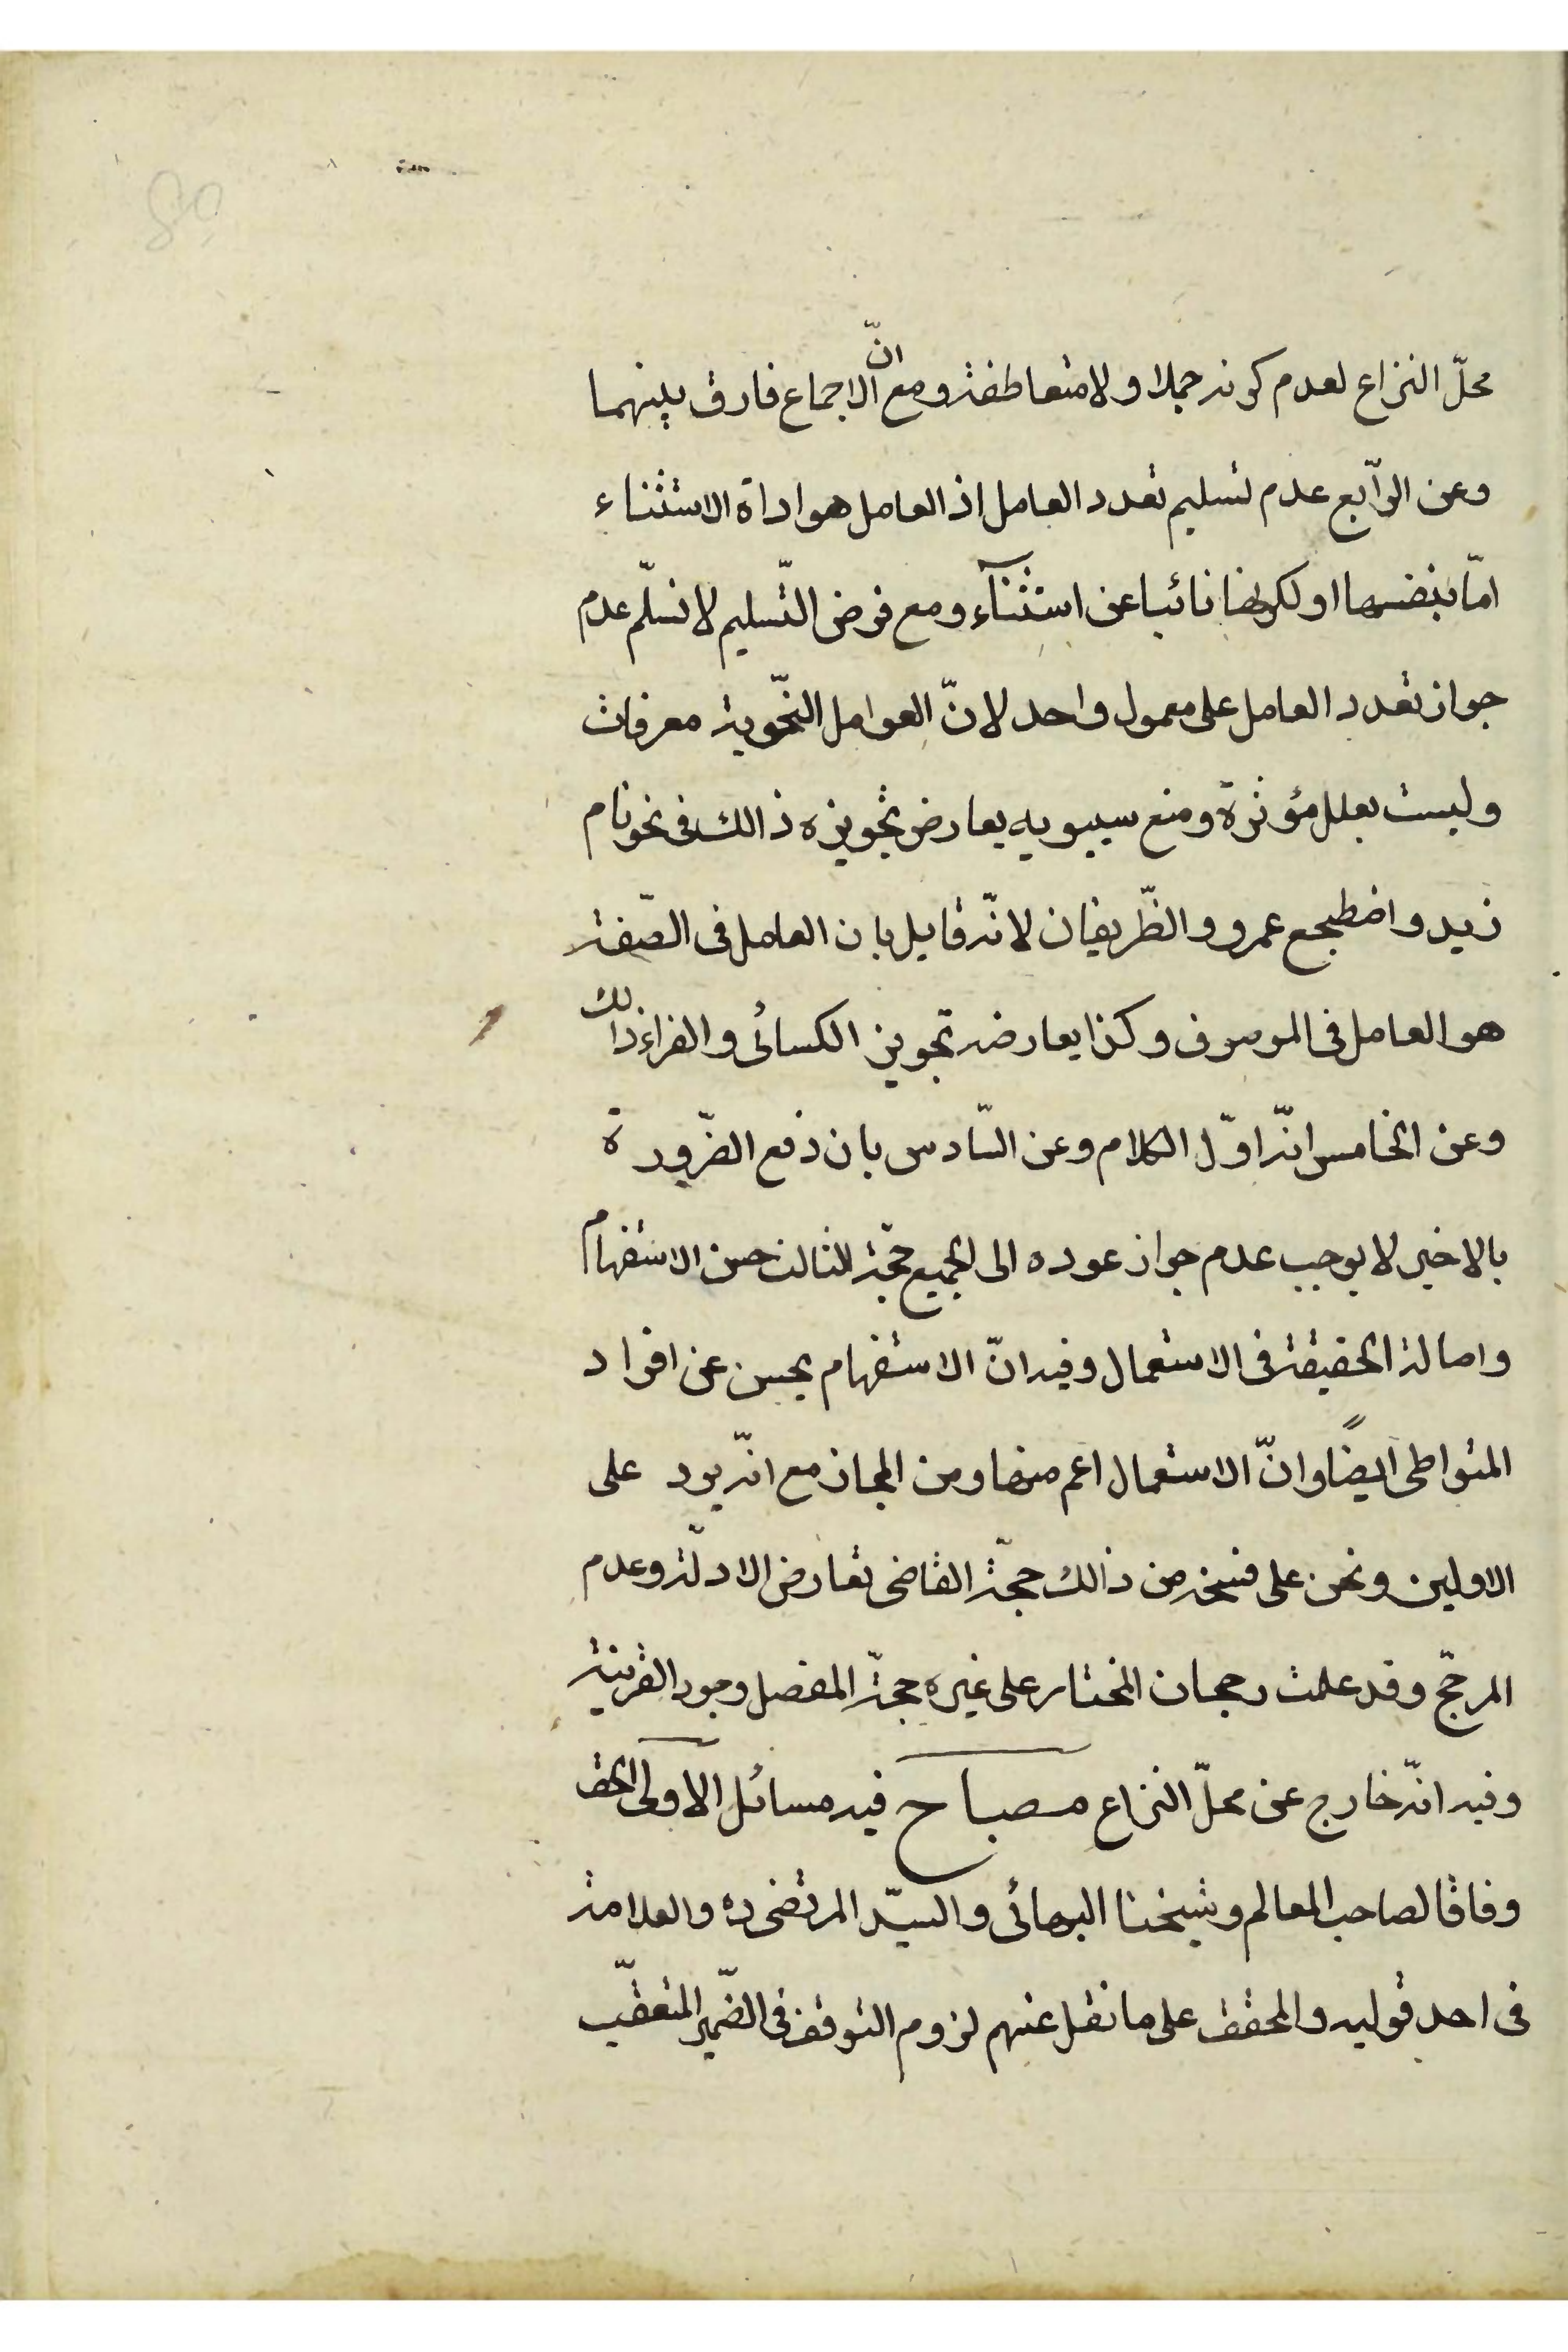 محلّ النزاع لعدم كونه جملا ولا متعاطفة ومع انّ الاجماع فارق بينهما
وعن الرّابع عدم تسليم تعدد العامل اذ العامل هو اداة الاستثناء
امّا بنفسها او لكونها نائبا عن استثنآء ومع فرض التّسليم لا نسلّم عدم
جواز تعدد العامل على معمول واحد لانّ العوامل النّحوية معرفات
وليست بعلل مؤثرة ومنع سيبويه يعارض بتجويزه ذالك فى نحو نام
زيد واضطجع عمرو والظّريفان لانّه قايل بان العامل فى الصّفة
هو العامل فى الموصوف وكذا يعارضه تجويز الكسائى والفراء ذالك
وعن الخامس انّه اوّل الكلام وعن السّادس بان دفع الضّرورة
بالاخير لا يوجب عدم جواز عوده الى الجميع حجّة الثالث حسن الاستفهام
واصالة الحقيقة فى الاستعمال وفيه انّ الاستفهام يحسن عن افراد
المتواطى ايضًا وانّ الاستعمال اعم منها ومن المجاز مع انّه يرد على
الاولين ونحن على فسحة من ذالك حجّة القاضى تعارض الادلّة وعدم
المرجّح وقد علمت رجحان المختار على غيره حجّة المفصل وجود القرينة
وفيه انّه خارج عن محلّ النزاع مصباح فيه مسائل الاولى الحق
وفاقا لصاحب المعالم وشيخنا البهائى والسيّد المرتضى ره والعلامة
فى احد قوليه والمحقق على ما نقل عنهم لزوم التوقف فى الضّمير المتعقّب